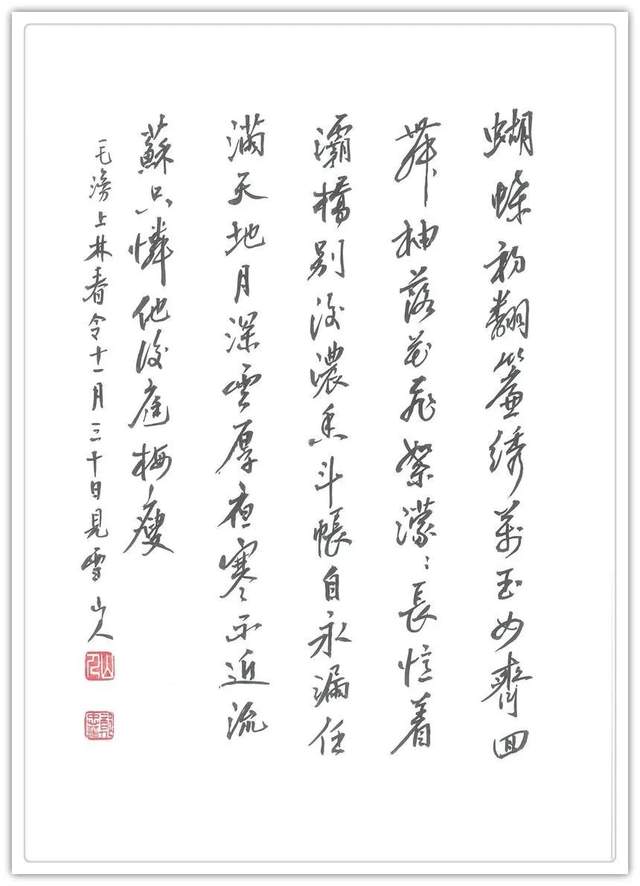 蝴蝶初翻簾綉萬玉女齊回
舞袖落花飛絮濛〻長憶着
灞橋別後濃香斗帳自永漏任
滿天地月深雲厚夜寒不近流
蘇只憐他後庭梅瘦
毛滂上林春令十一月三十日見雪 山人